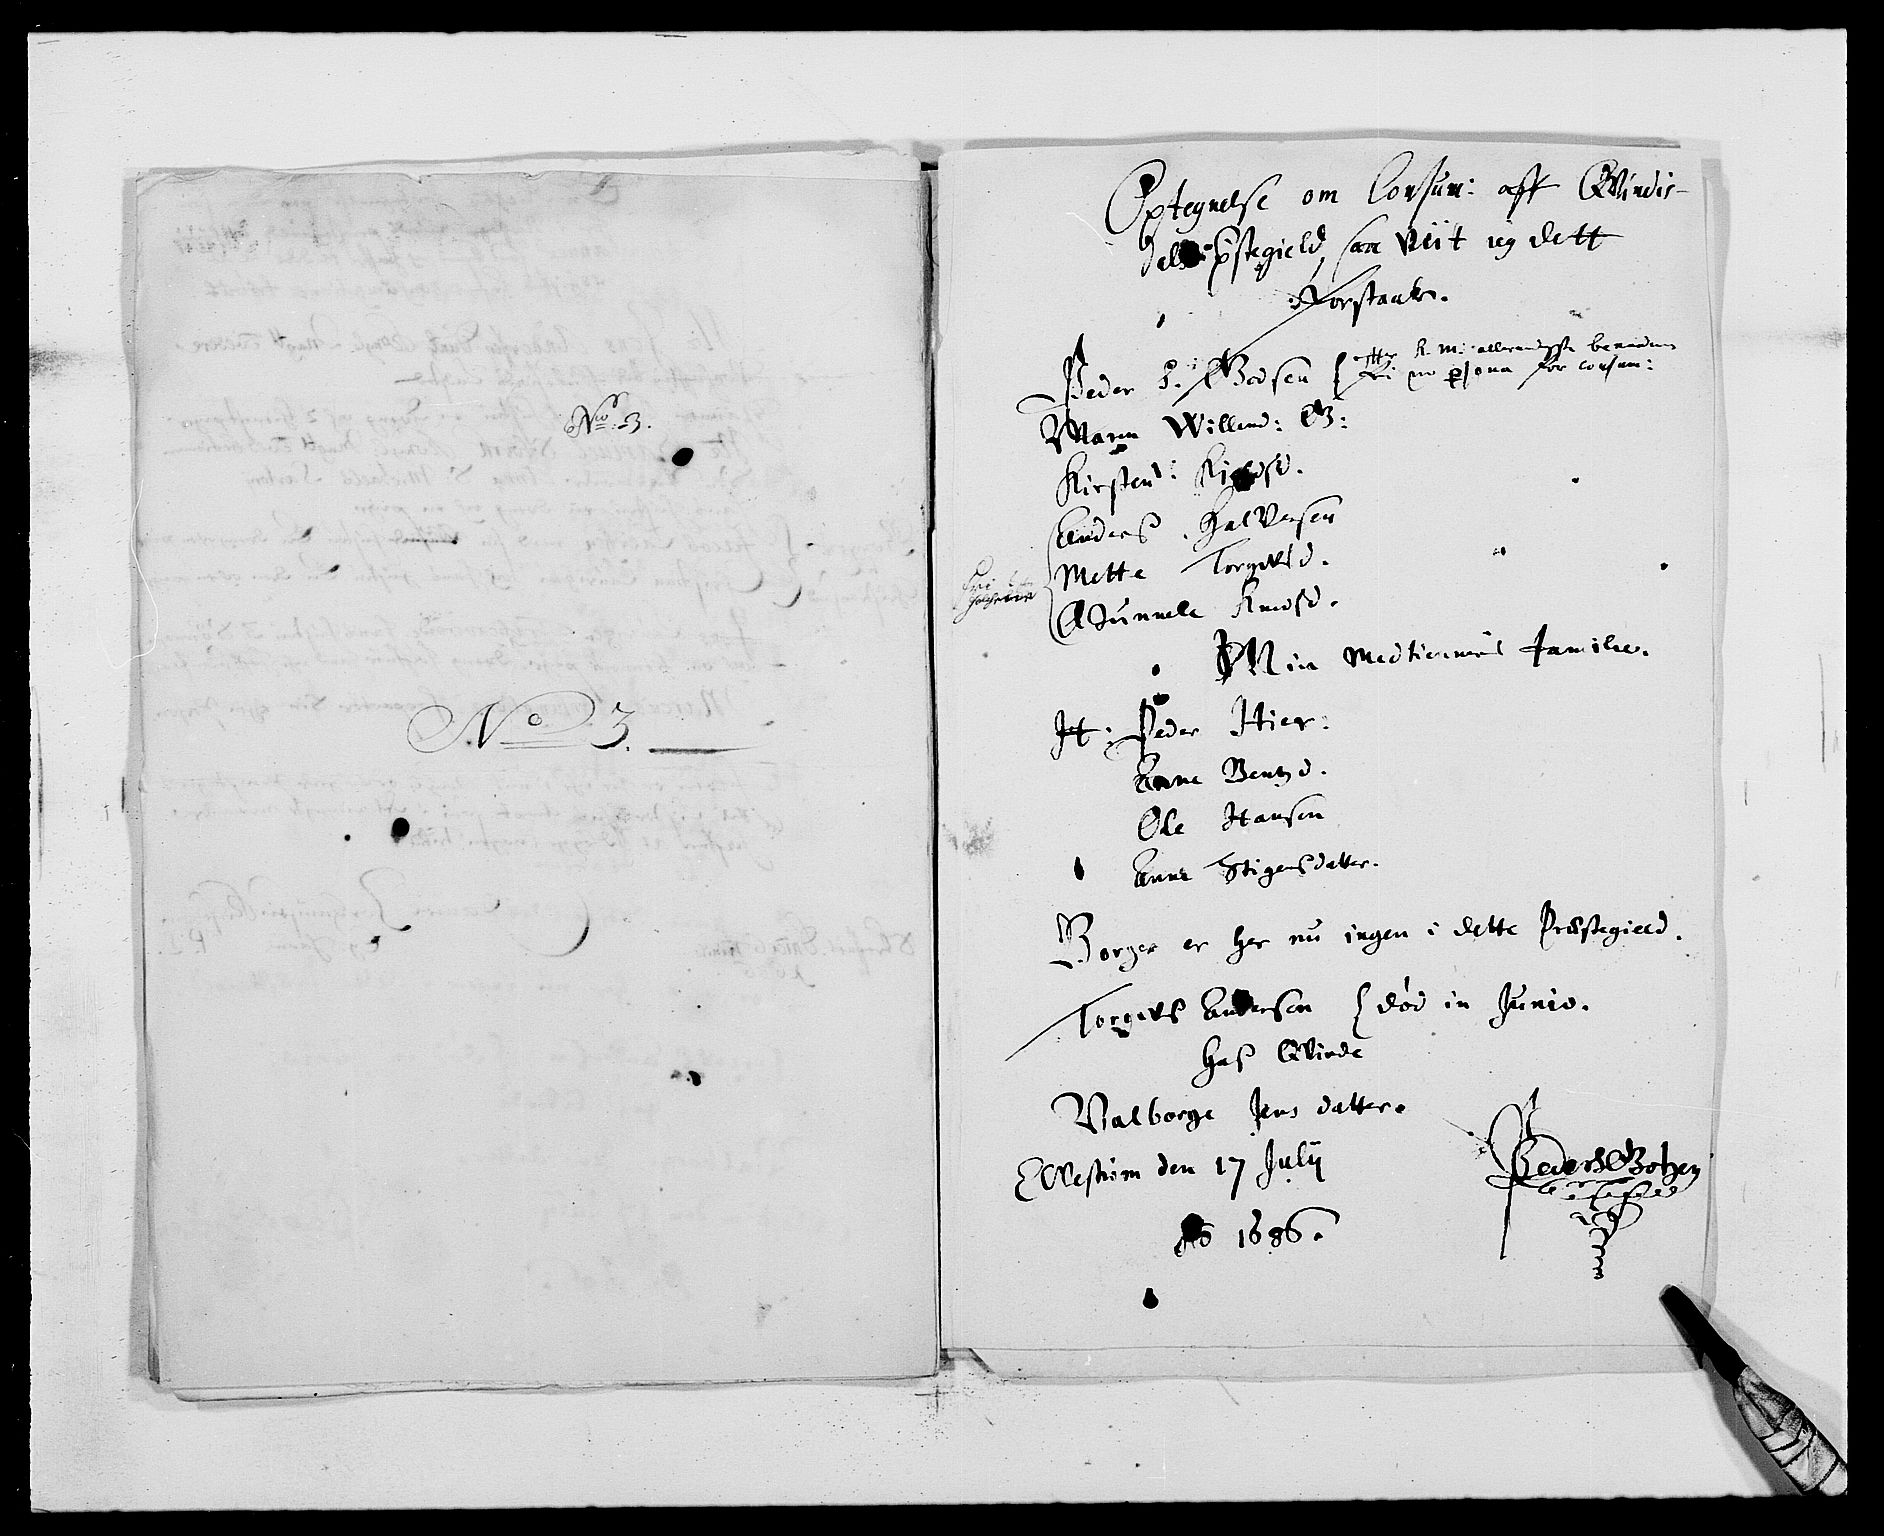 No: 3.
No 3.
Optegnelse om Consum: aff Qvindis-
dals pstegield, saa viit ieg dett
forstaaer.
Peder L. Godsen { efter K. M: allernaadigste benaadning
fri in persona for consum:
Maren Willemd: G:
Kirsten Knudsd.
Anders Halvorsen
Mette Torgersd.
Gunnele Knudsd.
Min Medtieneris familie.
H: Peder Hier:
Anne Bentzd.
Ole Hansen
Anne Stigensdatter.
Borger er her nu ingen i dette Præstegield.
Torgers Andersen { død in Junio.
Hass Qvinde
Valborge Jens datter.
den 17 July
Ao 1686.
Peder L Gotzen